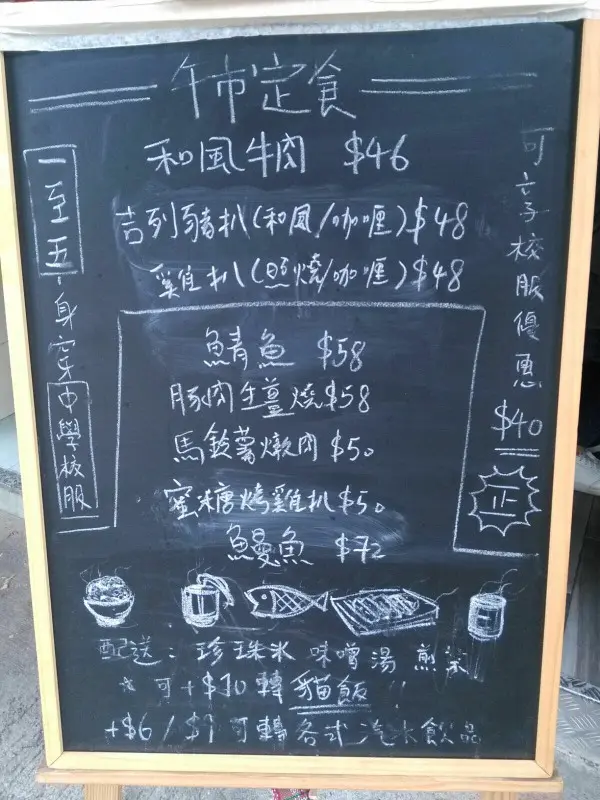 午市定食
和風牛肉 $46
吉列豬扒(和風/咖喱)$48
雞扒(照燒/咖喱)$48
鯖魚 $58
豚肉生薑燒$58
馬鈴薯燉肉$50
蜜糖烤雞扒$50
鰻魚 $72
一至五,身穿中學校服
可享校服優惠
$40
正
配送:珍珠米 味噌湯 煎茶
可+$10轉貓飯!!
+$6/$9可轉各式汽水飲品